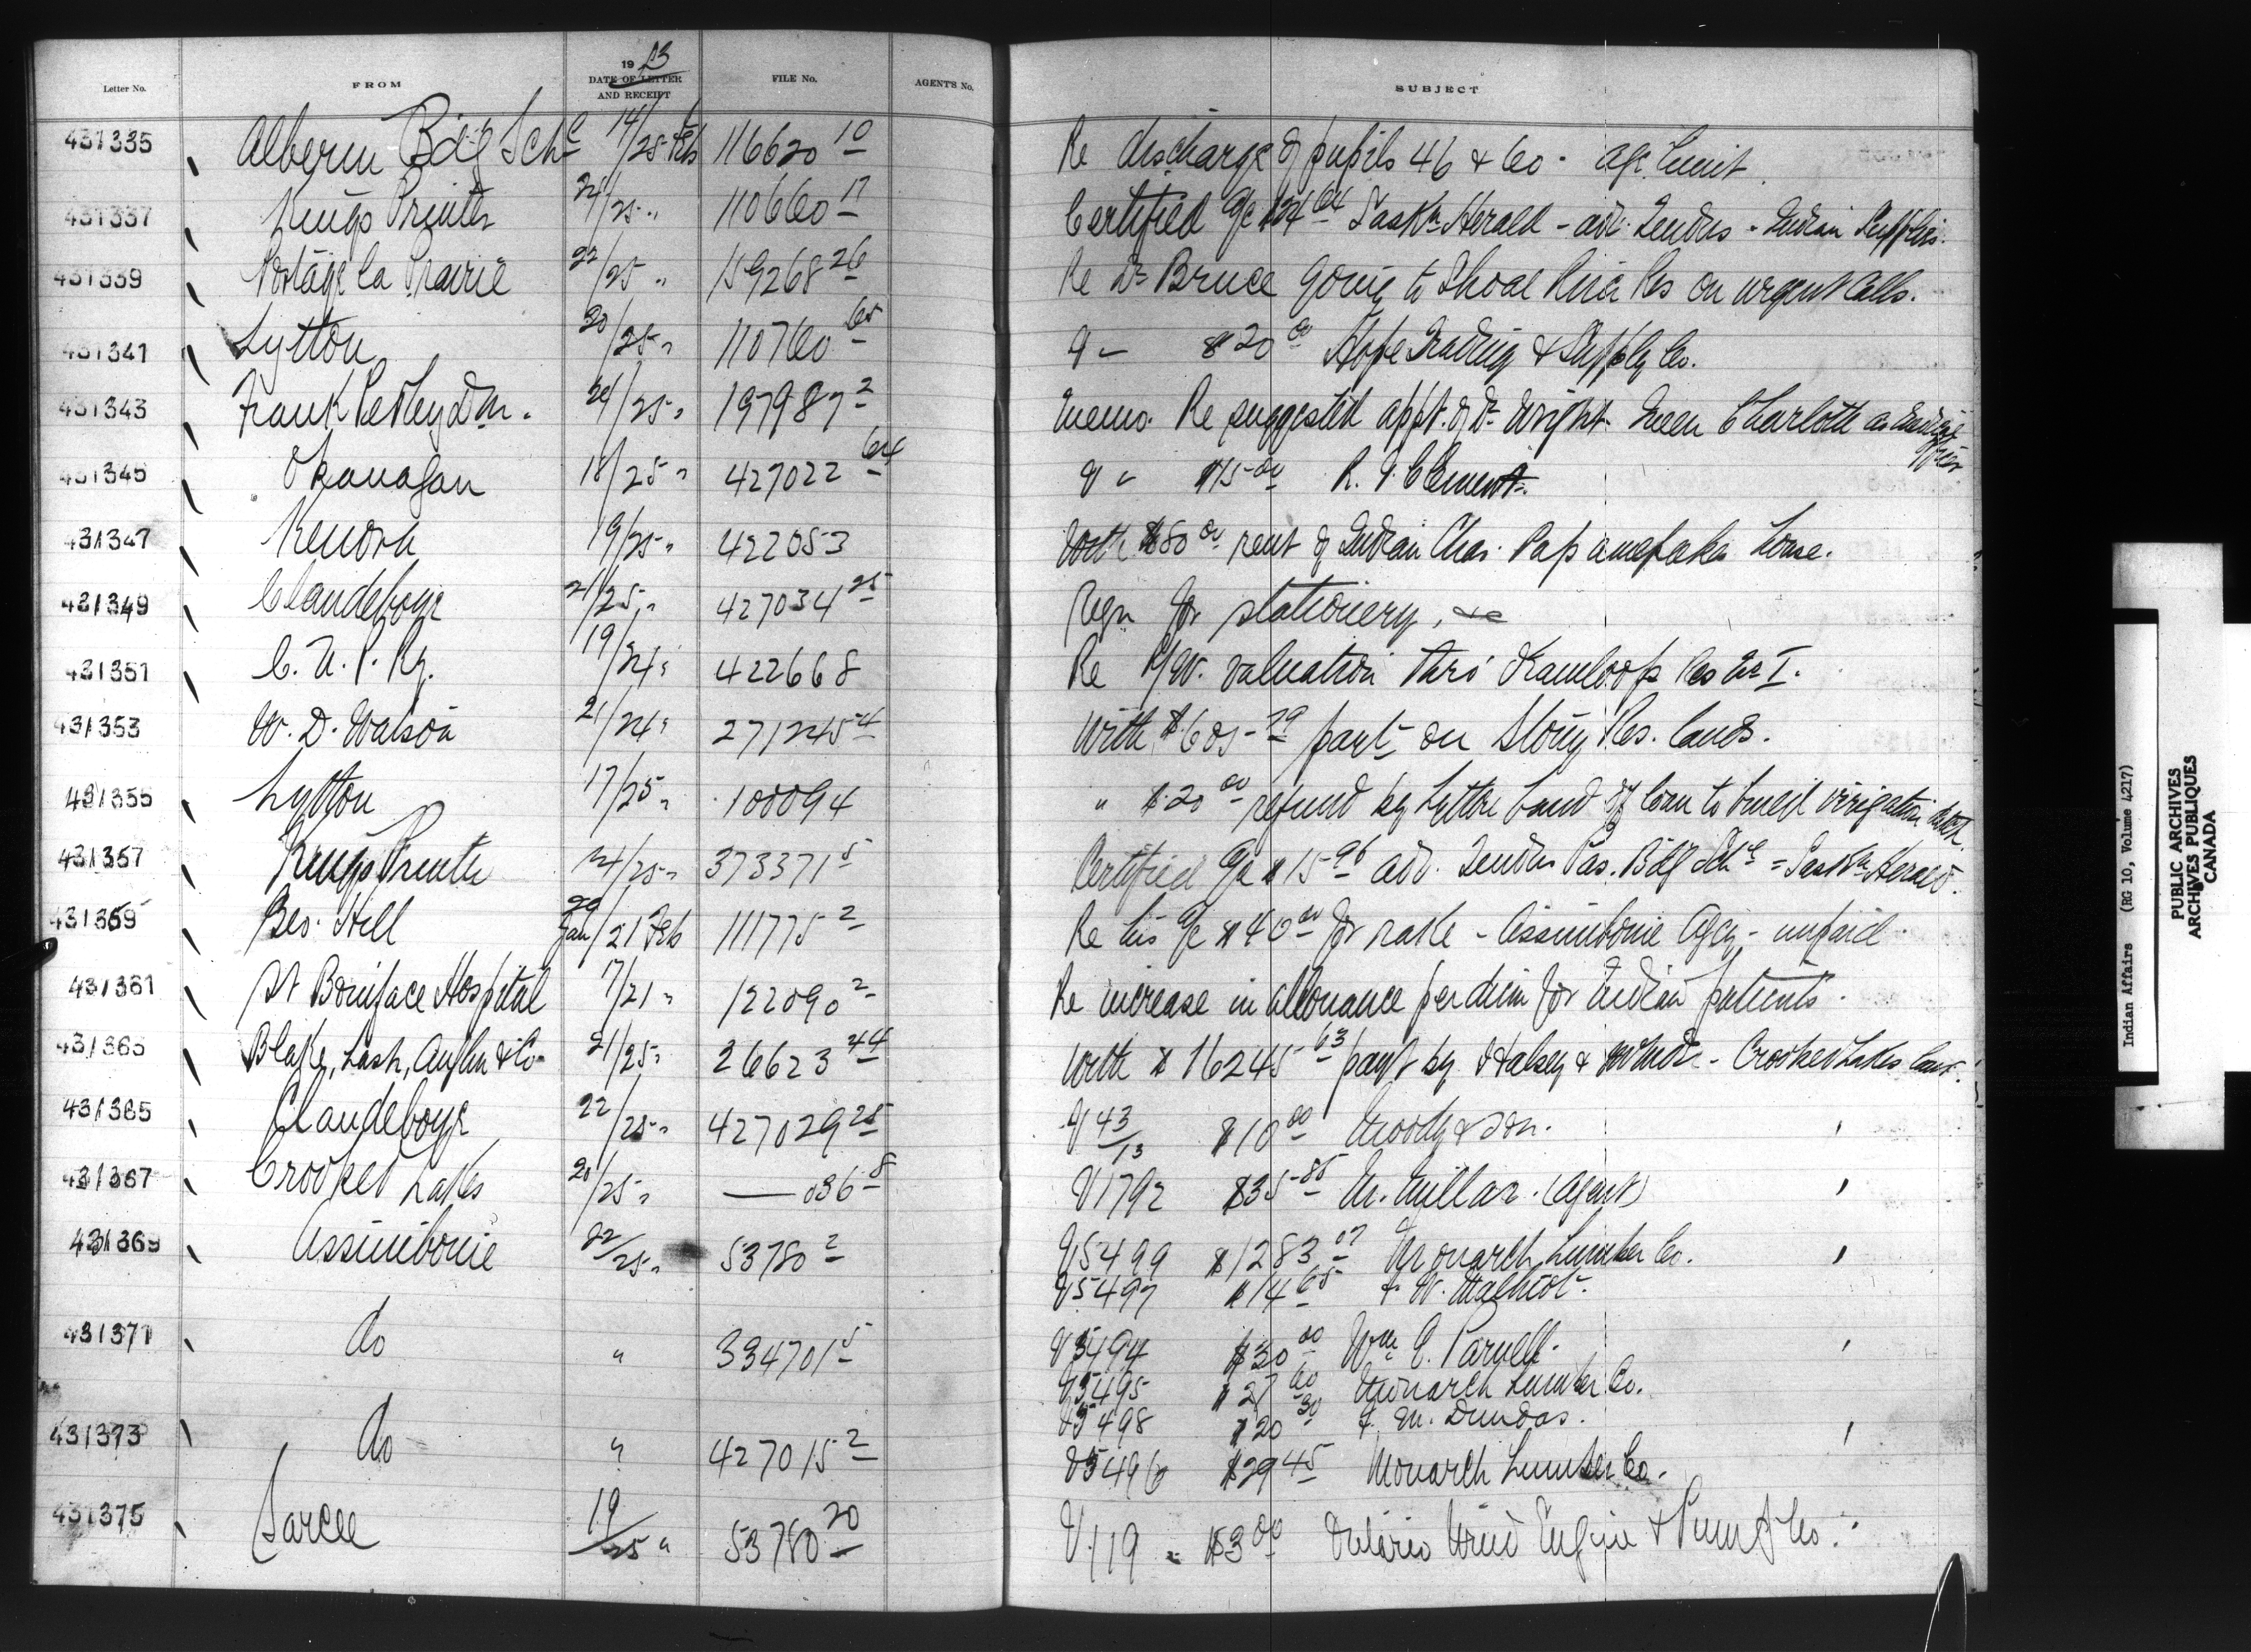 Letter No. FROM 1913 DATE OF LETTER AND RECEIPT FILE No. AGENT'S No. SUBJECT
431335 Alberni Bdg Schl 14/25 Feb 116620 10 Re discharge of pupils 46 & 60 - age limit
431337 Kings Printer 24/25 " 110660 17 Certified a/c $24 64 Saskn Herald - adv. Tenders - Indian Supplies.
431339 Portage la Prairie 22/25 " 159268 26 Re Dr Bruce going to Shoal River Res on urgent calls.
431341 Lytton 20/25 " 110760 65 V - $20 00 Hope Trading & Supply Co.
431343 Frank Pedley D m. 24/25 " 197987 2 Memo. Re suggested appt. of Dr Wright Queen Charlotte as Medical Officer
431345 Okanagan 18/25 " 427022 64 V - $15 00 R. F. Clement.
431347 Kenora 19/25 " 422053 With $80 00 rent of Indian Chas. house.
431349 Clandeboye 21/25 " 427034 25 Reqn for stationery, &c
431351 C. N. P. Ry. 19/24 " 422668 Re R/W. valuation thro' Kamloops Res No I.
431353 W. D. Watson 21/24 " 271245 4 With $605 79 payt on Stony Res. lands.
431355 Lytton 17/25 " 100094 " $20 00 refund by Lytton band of loan to build irrigation ditch.
431357 Kings Printer 24/25 " 373371 5 Certified a/c $15 96 adv. Tenders Pas. Bdg Schl = Saskn Herald.
431359 Geo. Hill Jan/21 Feb 111775 2 Re his a/c $40 00 for rake - Assiniboine Agcy - unpaid.
431361 St Boniface Hospital 17/21 " 122090 2 Re increase in allowance per diem for Indian patients.
431363 Blake, Lash, Anglin & Co 21/25 " 26623 44 With $16245 63 payt by Halsey & - Crooked Lakes land.
431365 Clandeboye 22/25 " 427029 25 V 43/13 $10 00 Moody & Son.
431367 Crooked Lakes 20/25 " — 036 8 V1792 $35 85 M. Millar. (Agent)
431369 Assiniboine 22/25 " 53780 2 V5499 $1283 07 Monarch Lumber Co.
V5497 $14 65 F. W.
431371 do " 334701 5 V5494 $30 00 Wm E. Parnell.
V5495 $27 60 Monarch Lumber Co.
V5498 $20 30 F. M. Dundas.
431373 do " 427015 2 V5496 $29 45 Monarch Lumber Co.
431375 Sarcee 19/25 " 53780 20 V119 - $3 00 Ontario Wind Engine & Pump Co.
Indian Affairs (RG 10, Volume 4217)
PUBLIC ARCHIVES
ARCHIVES PUBLIQUES
CANADA